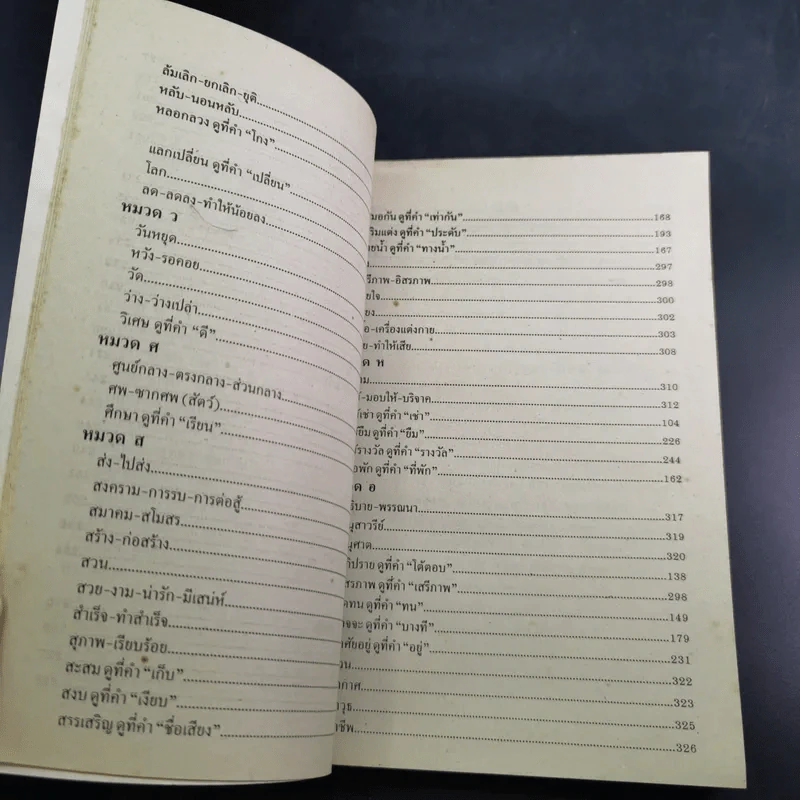 ล้มเลิก-ยกเลิก-ยุติ
หลับ-นอนหลับ
หลอกลวง ดูที่คำ “โกง”
แลกเปลี่ยน ดูที่คำ “เปลี่ยน”
โลก
ลด-ลดลง-ทำให้น้อยลง
หมวด ว
วันหยุด
หวัง-รอคอย
วัด
ว่าง-ว่างเปล่า
วิเศษ ดูที่คำ “ดี”
หมวด ศ
ศูนย์กลาง-ตรงกลาง-ส่วนกลาง
ศพ-ซากศพ (สัตว์)
ศึกษา ดูที่คำ “เรียน”
หมวด ส
ส่ง-ไปส่ง
สงคราม-การรบ-การต่อสู้
สมาคม-สโมสร
สร้าง-ก่อสร้าง
สวน
สวย-งาม-น่ารัก-มีเสน่ห์
สำเร็จ-ทำสำเร็จ
สุภาพ-เรียบร้อย
สะสม ดูที่คำ “เก็บ”
สงบ ดูที่คำ “เงียบ”
สรรเสริญ ดูที่คำ “ชื่อเสียง”
มอกัน ดูที่คำ “เท่ากัน” 168
ริมแต่ง ดูที่คำ “ประดับ” 193
ายน้ำ ดูที่คำ “ทางน้ำ” 167
297
รีภาพ-อิสรภาพ 298
ยใจ 300
ยง 302
อ-เครื่องแต่งกาย 303
ย-ทำให้เสีย 308
ด ห
าม 310
-มอบให้-บริจาค 312
เช่า ดูที่คำ “เช่า” 104
ยืม ดูที่คำ “ยืม” 226
รางวัล ดูที่คำ “รางวัล” 244
อพัก ดูที่คำ “ที่พัก” 162
ด อ
ธิบาย-พรรณนา 317
นุสาวรีย์ 319
นุศาต 320
ภิปราย ดูที่คำ “โต้ตอบ” 138
สรภาพ ดูที่คำ “เสรีภาพ” 298
ดทน ดูที่คำ “ทน” 149
าจจะ ดูที่คำ “บางที” 179
าศัยอยู่ ดูที่คำ “อยู่” 231
วน 322
ากาศ 323
าวุธ 325
าชีพ 326